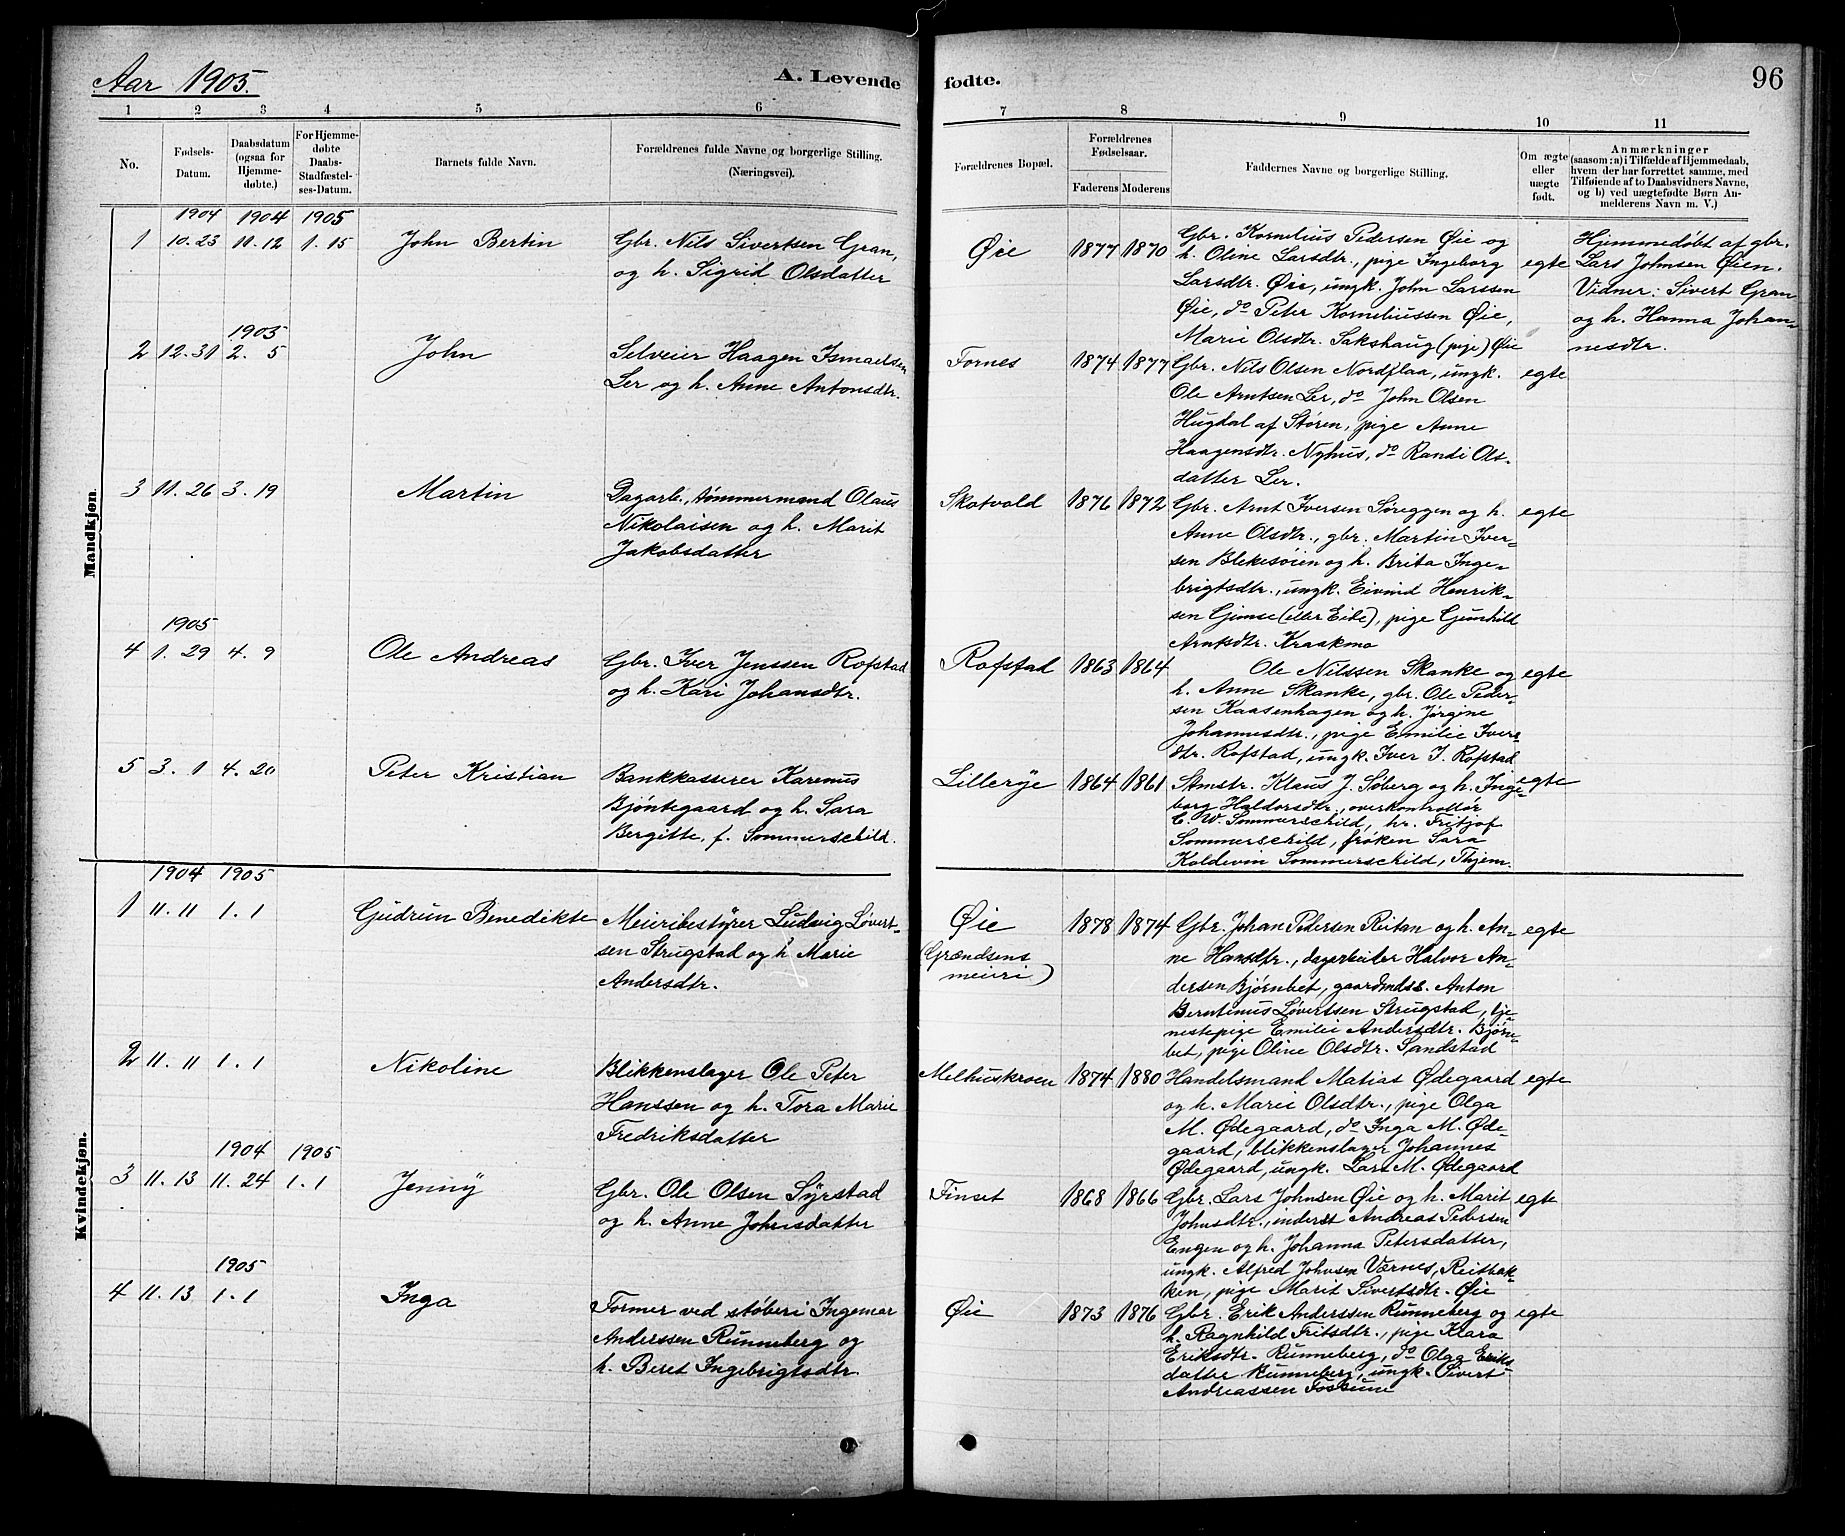 Aar 1905.
A. Levende fødte.
96
1 2 3 4 5 6 7 8 9 10 11
No.
Fødsels-
Datum.
Daabsdatum
(ogsaa for
Hjemme-
døbte.)
For Hjemme-
døbte
Daabs-
Stadfæstel-
ses-Datum.
Barnets fulde Navn.
Forældrenes fulde Navne og borgerlige Stilling.
(Næringsvei).
Forældrenes Bopæl.
Forældrenes
Fødselsaar.
Faderens Moderens
Faddernes Navne og borgerlige Stilling.
Om ægte
eller
uægte
født.
Anmærkninger
(saasom: a) i Tilfælde af Hjemmedaab,
hvem der har forrettet samme, med
Tilføiende af to Daabsvidners Navne,
og b) ved uægtefødte Børn An-
melderens Navn m. V.)
Mandkjøn.
1904 1904 1905
1 10.23 11.12 1.15
John Bertin
Gbr. Nils Sivertsen Gran,
og h. Sigrid Olsdatter
Øie
1877 1870
Gbr. Kornelius Pedersen Øie og
h. Oline Larsdtr., pige Ingeborg
Larsdtr. Øie, ungk. John Larssen
Øie, do Peter Korneliussen Øie,
Marie Olsdtr. Sakshaug (pige) Øie
egte
Hjemmedøbt af gbr.
Lars Johnsen Øien.
Vidner: Sivert Gran
og h. Hanna Johan-
nesdtr.
1905
2 12.31 2.5
John
Selveier Haagen Ismaelsen
Ler og h. Anne Antonsdtr.
Fornes
1874 1877
Gbr. Nils Olsen Nordflaa, ungk.
Ole Arntsen Ler, do John Olsen
Hugdal af Støren, pige Anne
Haagensdtr. Nyhus, do Randi Ols-
datter Ler.
egte
3 11.26 3.19
Martin
Dagarb., tømmermand Olaus
Nikolaisen og h. Marit
Jakobsdatter
Skotvold
1876 1872
Gbr. Arnt Iversen Søreggen og h.
Anne Olsdtr., gbr. Martin Iver-
sen Blekesøien og h. Brita Inge-
brigtsdtr., ungk. Eivind Henrik-
sen Gimse (eller Eide), pige Gunhild
Arntsdtr. Kraakmo
egte
1905
4 1.29 4.9
Ole Andreas
Gbr. Iver Jenssen Rofstad
og h. Kari Johansdtr.
Rofstad
1863 1864
Ole Nilssen Skanke og
h. Anne Skanke, gbr. Ole Peder-
sen Kaasenhagen og h. Jørgine
Johannesdtr., pige Emilie Ivers-
dtr. Rofstad, ungk. Iver J. Rofstad
egte
5 3.1 4.20
Peter Kristian
Bankkasserer Karenus
Bjøntegaard og h. Sara
Bergitte, f. Sommerschild.
Lillerye
1864 1861
Stmstr. Klaus J. Søberg og h. Inge-
borg Haldorsdtr., overkontrollør
C. W. Sommerschild, hr. Fritjof
Sommerschild, frøken Sara
Koldevin Sommerschild, Thjem.
egte
Kvindekjøn.
1904 1905
1 11.11 1.1
Gudrun Benedikte
Meieribestyrer Ludvig Løvert-
sen Strugstad og h. Marie
Andersdtr.
Øie
(Grændsens
meieri)
1878 1874
Gbr. Johan Pedersen Reitan og h. An-
ne Hansdtr., dagarbeider Halvor An-
dersen Bjørnbet, gaardmds s. Anton
Berntinus Løvertsen Strugstad, tje-
nestepige Emilie Andersdtr. Bjørn-
bet, pige Oline Olsdtr. Sandstad
egte
2 11.11 1.1
Nikoline
Blikkenslager Ole Peter
Hanssen og h. Tora Marie
Fredriksdatter
Melhuskroen
1874 1880
Handelsmand Matias Ødegaard
og h. Marie Olsdtr., pige Olga
M. Ødegaard, do Inga M. Øde-
gaard, blikkenslager Johannes
Ødegaard, ungk. Lars M. Ødegaard
egte
1904 1905
3 11.13 11.24 1.1
Jenny
Gbr. Ole Olsen Syrstad
og h. Anne Johnsdatter
Finset
1868 1866
Gbr. Lars Johnsen Øie og h. Marit
Johnsdtr., inderst Andreas Pedersen
Engen og h. Johanna Petersdatter,
ungk. Alfred Johnsen Værnes, Reitbak-
ken, pige Marit Sivertsdtr. Øie
egte
1905
4 11.13 1.1
Inga
Former ved støberi Ingemar
Anderssen Runneberg og
h. Beret Ingebrigtsdtr.
Øie
1873 1876
Gbr. Erik Anderssen Runneberg og
h. Ragnhild Fritsdtr., pige Klara
Eriksdtr. Runneberg, do Olga Eriks-
datter Runneberg, ungk. Sivert
Andreassen Fossune
egte